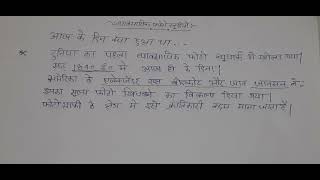 व्यावसायिक फोटो स्टूडियो:-
आज के दिन क्या हुआ था...
* दुनिया का पहला व्यावसायिक फोटो न्यूयार्क में खोला गया।
सन 1840 ई० में आज ही के दिन।
अमेरिका के एलेक्जेंडर एस और जान जानसन ने-
इसका मुख्य फोटो खिंचवाने का विकल्प दिया गया।
फोटोग्राफी के क्षेत्र में इसे क्रांतिकारी कदम माना जाता है।